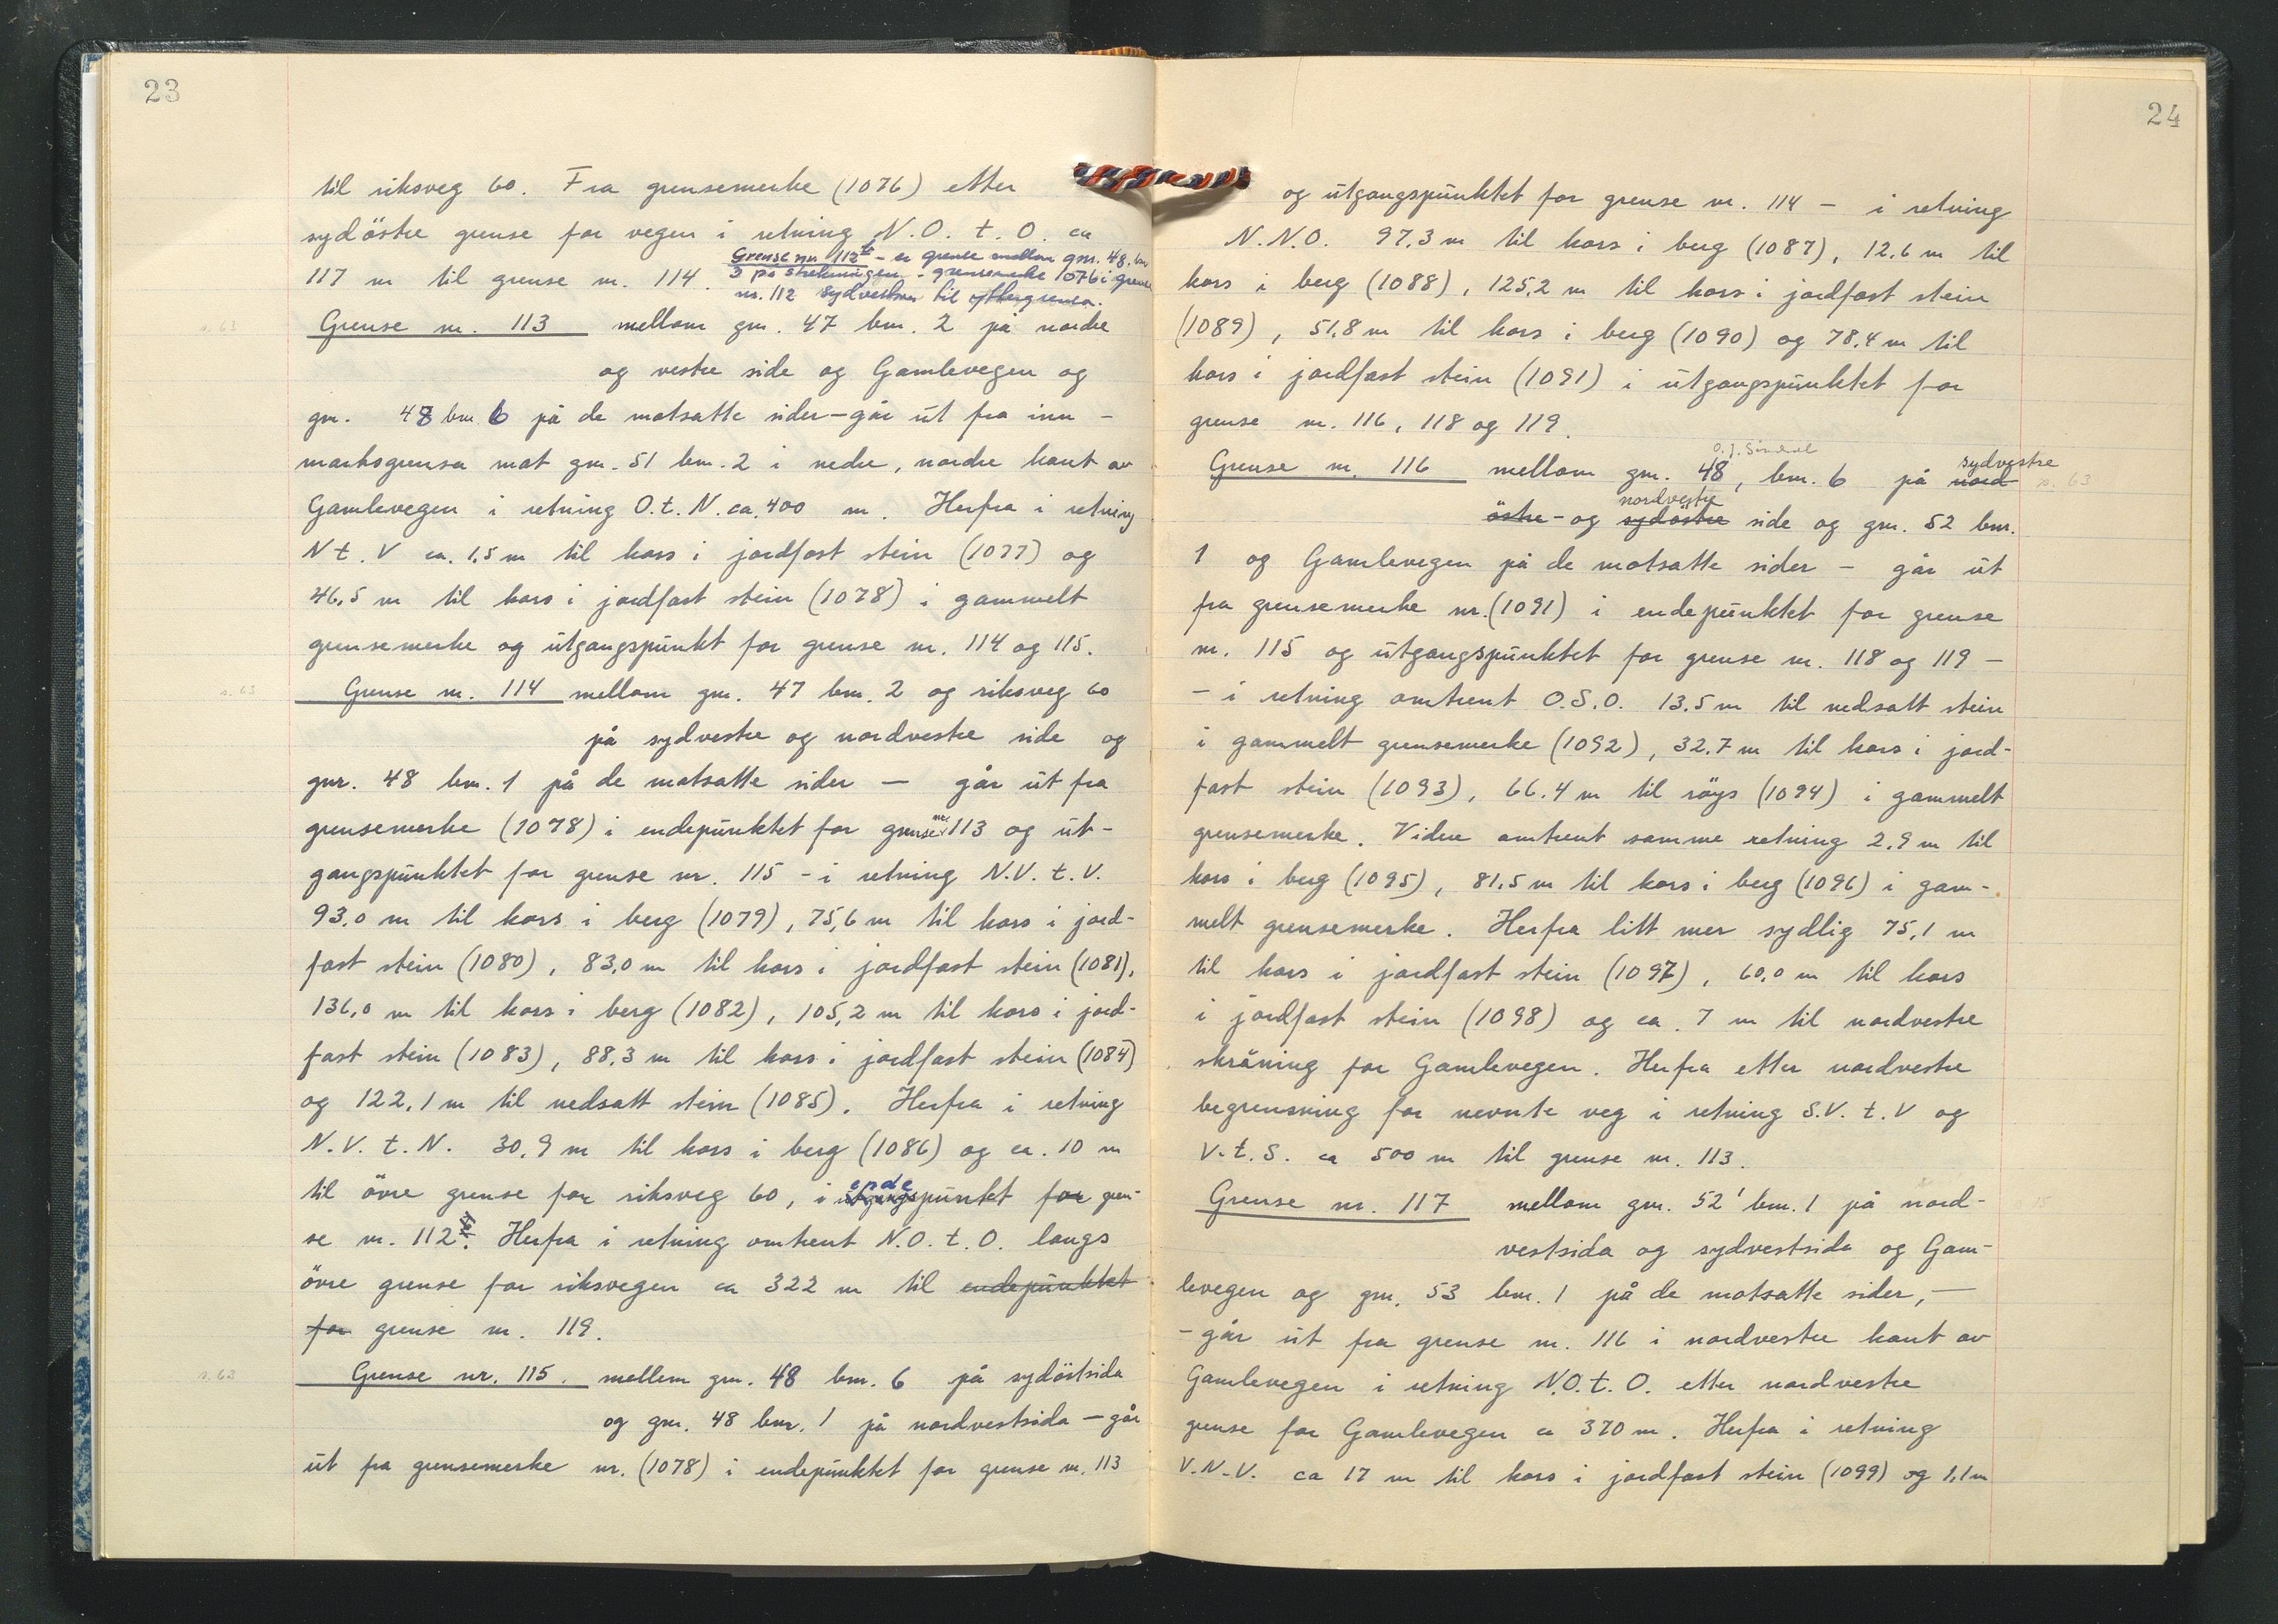 23
til riksveg 60. Fra grensemerke (1076) etter
sydöstre grense for vegen i retning N.O. t. O. ca
117 m til grense nr. 114.
Grense nr. 112 b - er grense mellom gnr. 48, bnr.
3 på strekningen - grensemerke 1076 i grense
nr. 112 sydvestover til yttergrensa.
s. 63
Grense nr. 113 mellom gnr. 47 bnr. 2 på nordre
og vestre side og Gamlevegen og
gnr. 48 bnr. 6 på de motsatte sider - går ut fra inn-
marksgrensa mot gnr. 51 bnr. 2 i nedre, nordre kant av
Gamlevegen i retning O.t. N. ca. 400 m. Herfra i retning
N t. V ca. 1,5 m til kors i jordfast stein (1077) og
46,5 m til kors i jordfast stein (1078) i gammelt
grensemerke og utgangspunkt for grense nr. 114 og 115.
s. 63
Grense nr. 114 mellom gnr. 47 bnr. 2 og riksveg 60
på sydvestre og nordvestre side og
gnr. 48 bnr. 1 på de motsatte sider - går ut fra
grensemerke (1078) i endepunktet for grense nr. 113 og ut-
gangspunktet for grense nr. 115 - i retning N.V. t. V.
93,0 m til kors i berg (1079), 75,6 m til kors i jord-
fast stein (1080), 83,0 m til kors i jordfast stein (1081),
136,0 m til kors i berg (1082), 105,2 m til kors i jord-
fast stein (1083), 88,3 m til kors i jordfast stein (1084)
og 122,1 m til nedsatt stein (1085). Herfra i retning
N.V. t. N. 30,9 m til kors i berg (1086) og ca. 10 m
ende
til övre grense for riksveg 60, i utgangspunkt for gren-
se nr. 112. Herfra i retning omtrent N.O. t. O. langs
övre grense for riksvegen ca 322 m til endepunktet
for grense nr. 119.
s. 63
Grense nr. 115. mellem gnr. 48 bnr. 6 på sydöstsida
og gnr. 48 bnr. 1 på nordvestsida - går
ut fra grensemerke nr. (1078) i endepunktet for grense nr. 113
24
og utgangspunktet for grense nr. 114 - i retning
N.N.O. 97,3 m til kors i berg (1087), 12,6 m til
kors i berg (1088), 125,2 m til kors i jordfast stein
(1089), 51,8 m til kors i berg (1090) og 78,4 m til
kors i jordfast stein (1091) i utgangspunktet for
grense nr. 116, 118 og 119.
sydvestre
Grense nr. 116 mellom gnr. 48, bnr. 6 på nord-
s. 63
nordvestre
östre- og sydöstre side og gnr. 52 bnr.
1 og Gamlevegen på de motsatte sider - går ut
fra grensemerke nr. (1091) i endepunktet for grense
nr. 115 og utgangspunktet for grense nr. 118 og 119 -
- i retning omtrent O.S.O. 13,5 m til nedsatt stein
i gammelt grensemerke (1092), 32,7 m til kors i jord-
fast stein (1093), 66,4 m til röys (1094) i gammelt
grensemerke. Videre omtrent samme retning 2,9 m til
kors i berg (1095), 81,5 m til kors i berg (1096) i gam-
melt grensemerke. Herfra litt mer sydlig 75,1 m
til kors i jordfast stein (1097), 60,0 m til kors
i jordfast stein (1098) og ca. 7 m til nordvestre
skråning for Gamlevegen. Herfra etter nordvestre
begrensning for nevnte veg i retning S.V. t. V og
V. t. S. ca 500 m til grense nr. 113.
Grense nr. 117 mellom gnr. 52 bnr. 1 på nord-
vestsida og sydvestsida og Gam-
levegen og gnr. 53 bnr. 1 på de motsatte sider, -
- går ut fra grense nr. 116 i nordvestre kant av
Gamlevegen i retning N.O. t. O. etter nordvestre
grense for Gamlevegen ca 370 m. Herfra i retning
V.N.V. ca 17 m til kors i jordfast stein (1099) og 1,1 m